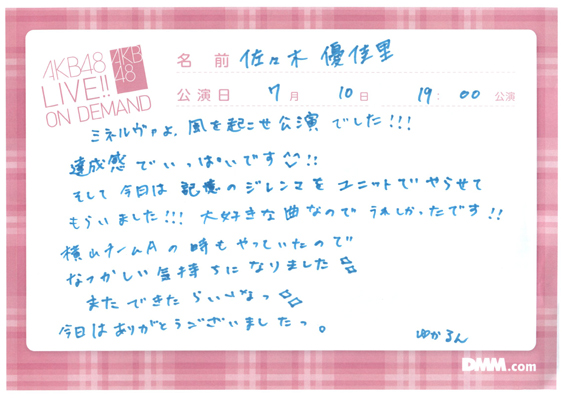 AKB48
LIVE!!
ON DEMAND
AKB
48
名前 佐々木優佳里
公演日 7月 10日 19:00 公演
ミネルヴァよ、風を起こせ公演でした!!!
達成感でいっぱいです!!
そして今日は記憶のジレンマをユニットでやらせて
もらいました!!! 大好きな曲なのでうれしかったです!!
横山チームAの時もやっていたので
なつかしい気持ちになりました
またできたらいいなっ
今日はありがとうございましたっ。
ゆかるん
DMM.com